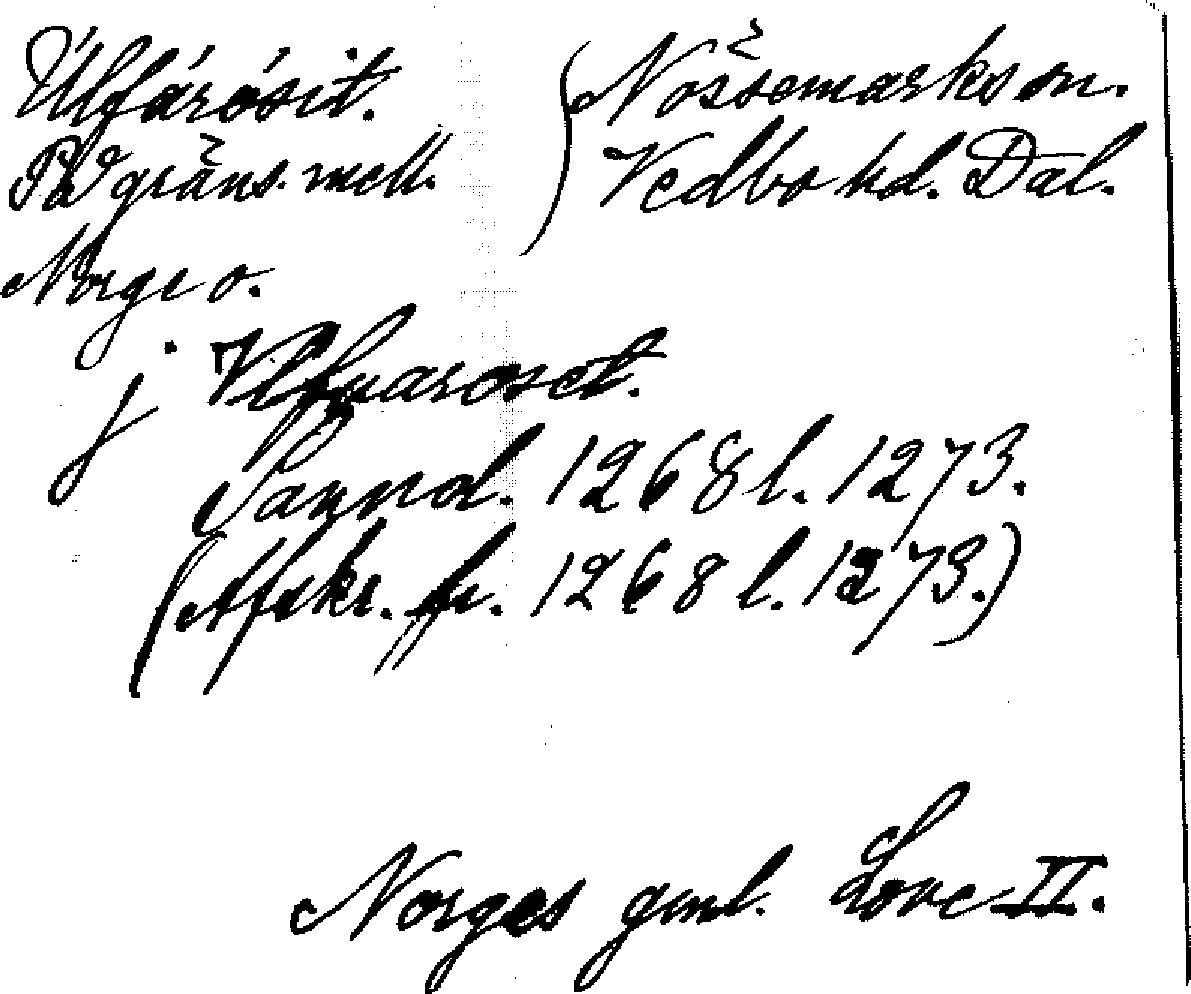 Úlfárósit.
På gräns. mell.
Norge o.
Nössemarks sn.
Vedbo hd. Dal.
j Vlfuaroset.
Sannol. 1268 l. 1273.
(Afskr. fr. 1268 l. 1273.)
Norges gml. Love II.